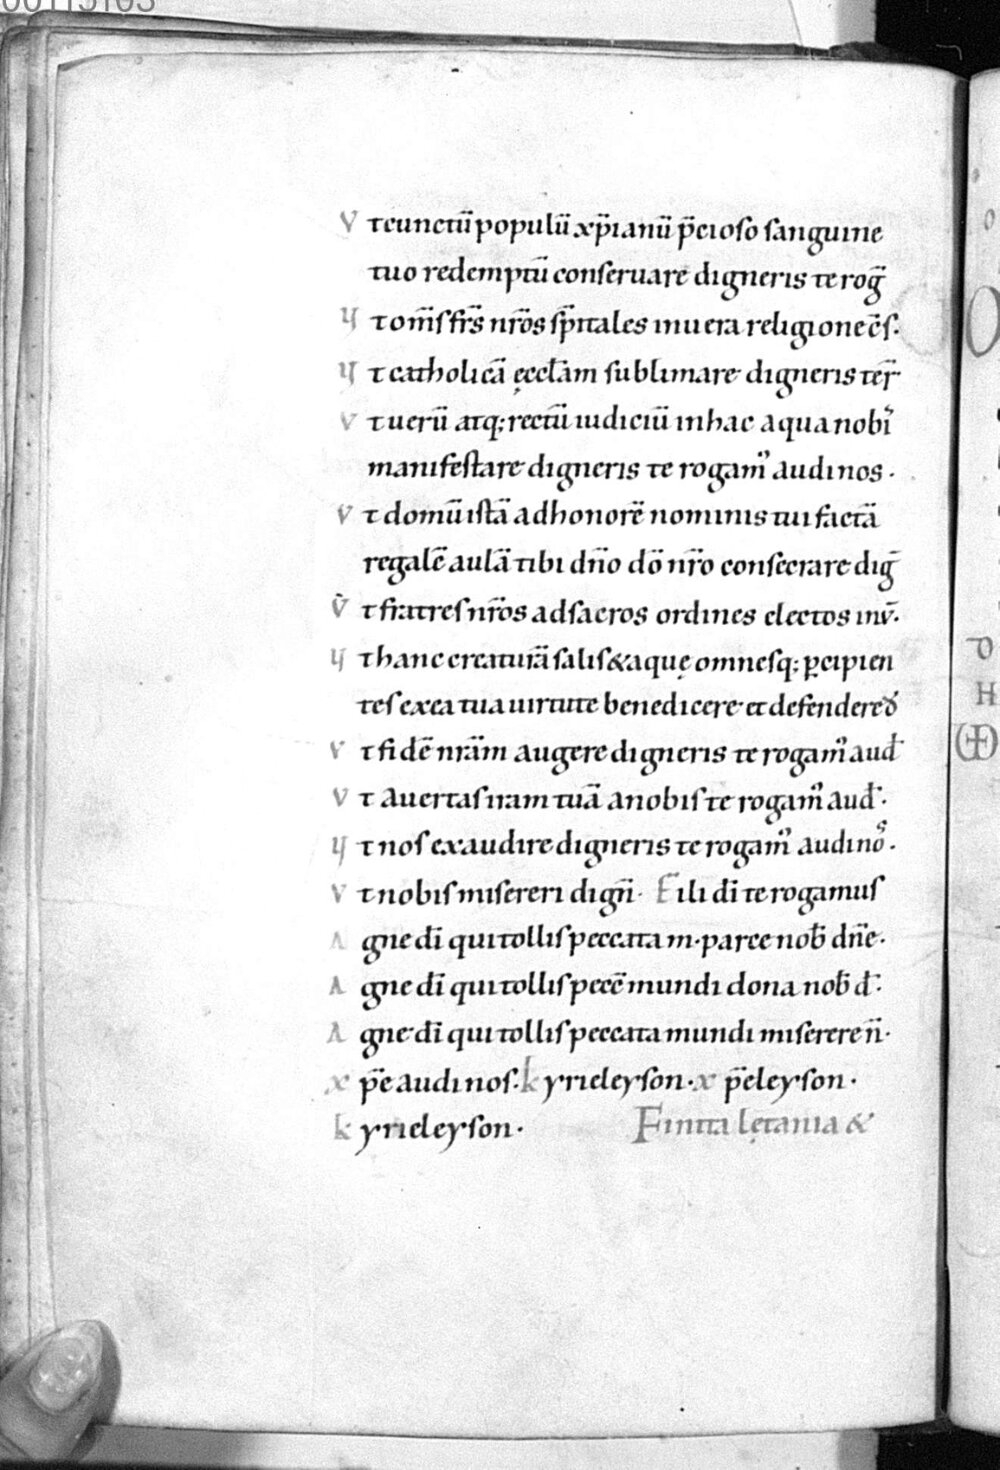 Vt cunctū populū xp̄ianū p̄cioso sanguine
tuo redemptū conseruare digneris te roḡ
Vt om̄s fr̄s nr̄os sp̄itales in uera religione c̄s·
Vt catholicā ęccl̄am sublimare digneris te r̄
Vt uerū atq; rectū iudiciū in hac aqua nobi᷒
manifestare digneris te rogam᷒ audi nos·
Vt domū istā ad honorē nominis tui factā
regalē aulā tibi dn̄o dō nr̄o consecrare diḡ
Vt fratres nr̄os ad sacros ordines electos inv̄·
Vt hanc creaturā salis & aquę omnesq; ꝑcipien
tes ex ea tua uirtute benedicere et defendere d̄
Vt fidē nrām augere digneris te rogam᷒ aud̄
Vt auertas iram tuā a nobis te rogam᷒ aud̄·
Vt nos exaudire digneris te rogam᷒ audi noˢ·
Vt nobis misereri dign̄· Fili dī te rogamus
Agne dī qui tollis peccata m· parce nob̄ dn̄e·
Agne dī qui tollis pecc̄ mundi dona nob̄ d̄·
Agne dī qui tollis peccata mundi miserere n̄·
xp̄e audi nos· kyrieleyson· xp̄eleyson·
kyrieleyson· Finita lętania &